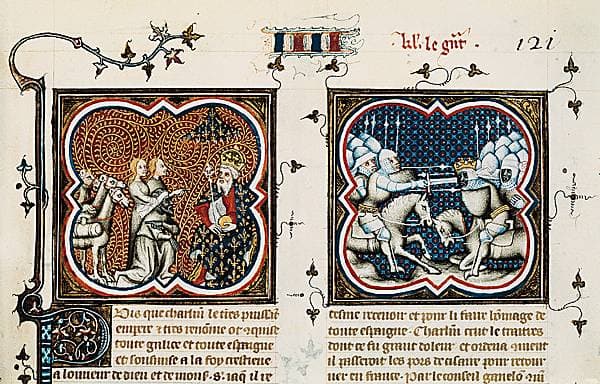 le 121
Puis que charlm le tres puissãt
et tres renome ot aquise
toute galice et toute espaigne
et soumise a la foy crestiene
a louneur de dieu et de mons. iaq̃ il re
recevoir et pour li faire homage de
toute espaigne. Charlm crut le traitres
dont ce fu grant doleur. et ordena
il passeroit les pors de pour retour
ner en france. Par le conseil ganelon